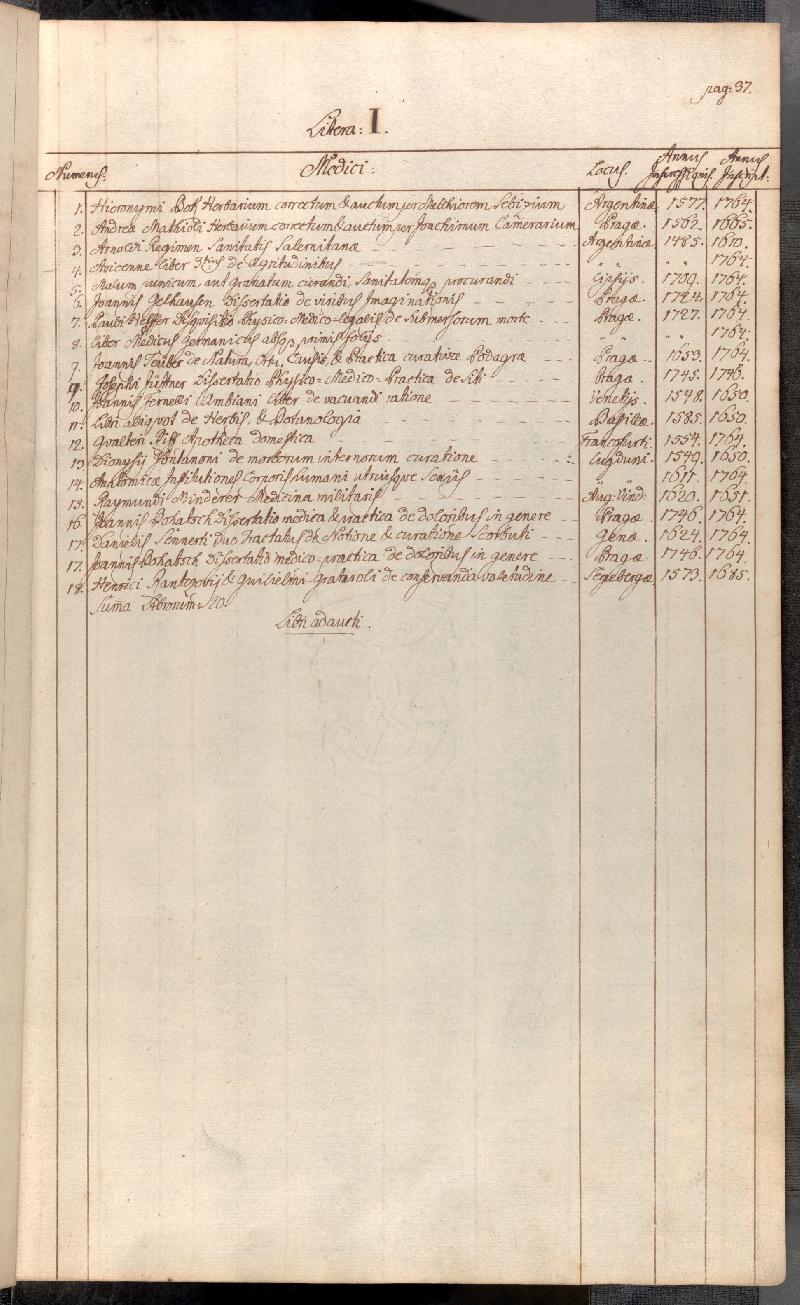 pag: 37.
Litera: I.
Numerus: Medici: Locus. Annus Impressionis Annus Inscript:
1. Hieronymi Bok Herbarium correctum & auctum per Melchiorem Sebizium Argentinæ 1577. 1764.
2. Andreæ Mathioli Herbarium correctum & auctum per Joachimum Camerarium Pragæ. 1562. 1665.
3. Arnoldi Regimen Sanitatis Salernitanæ Argentinæ 1485. 1610.
4. Avicenne Liber 3tius de Ægritudinibus " " " 1764.
5. Malum punicum, aut granatum curandi, Sanitatemq procurandi Lipsijs. 1709. 1764.
6. Joannis Gelhausen Dissertatio de viribus Imaginationis Pragæ. 1724. 1764.
7. Pauli Heffter Disquisitio Physico-Medico-legalis de Submersorum morte Pragæ. 1727. 1764.
8. Liber Medicus Germanicus absq primis folijs " " " 1764.
9. Joannis Teuber de Natura, Ortu, Causis, & Practica curativa Podagræ Pragæ 1653. 1764.
9. Josephi Jüstner Dissertatio Physico-Medico-Practica de Siti Pragæ 1745. 1746.
10. Joannis Fernelli Ambiani Liber de vacuandi ratione Venetijs. 1548. 1650.
11. Libri aliquot de Herbis, & Botanologia Basileæ. 1585. 1650.
12. Gvalteri Riff Apotheca domestica Francofurti. 1554. 1764.
13. Dionysij Fontanoni de morborum internorum curatione Lugduni. 1549. 1650.
14. Anatomicæ Institutiones Corporis humani utriusque Sexûs " 1611. 1764.
15. Raymundi Minderer Medicina militaris Aug: Vind: 1620. 1651.
16. Joannis Bohatsch Dissertatio medica & practica de doloribus in genere Pragæ 1746. 1764.
17. Danielis Sennerti Duo Tractatus de Natione & curatione Scorbuti Genæ. 1624. 1764.
17. Joannis Bohatsch Dissertatio medico-practica de doloribus in genere Pragæ 1746. 1764.
18. Henrici Rantzovij & Guilielmi Grataroli de conservanda valetudine Segebergæ 1573. 1685.
Suma Librorum: 20.
Libri adaucti.